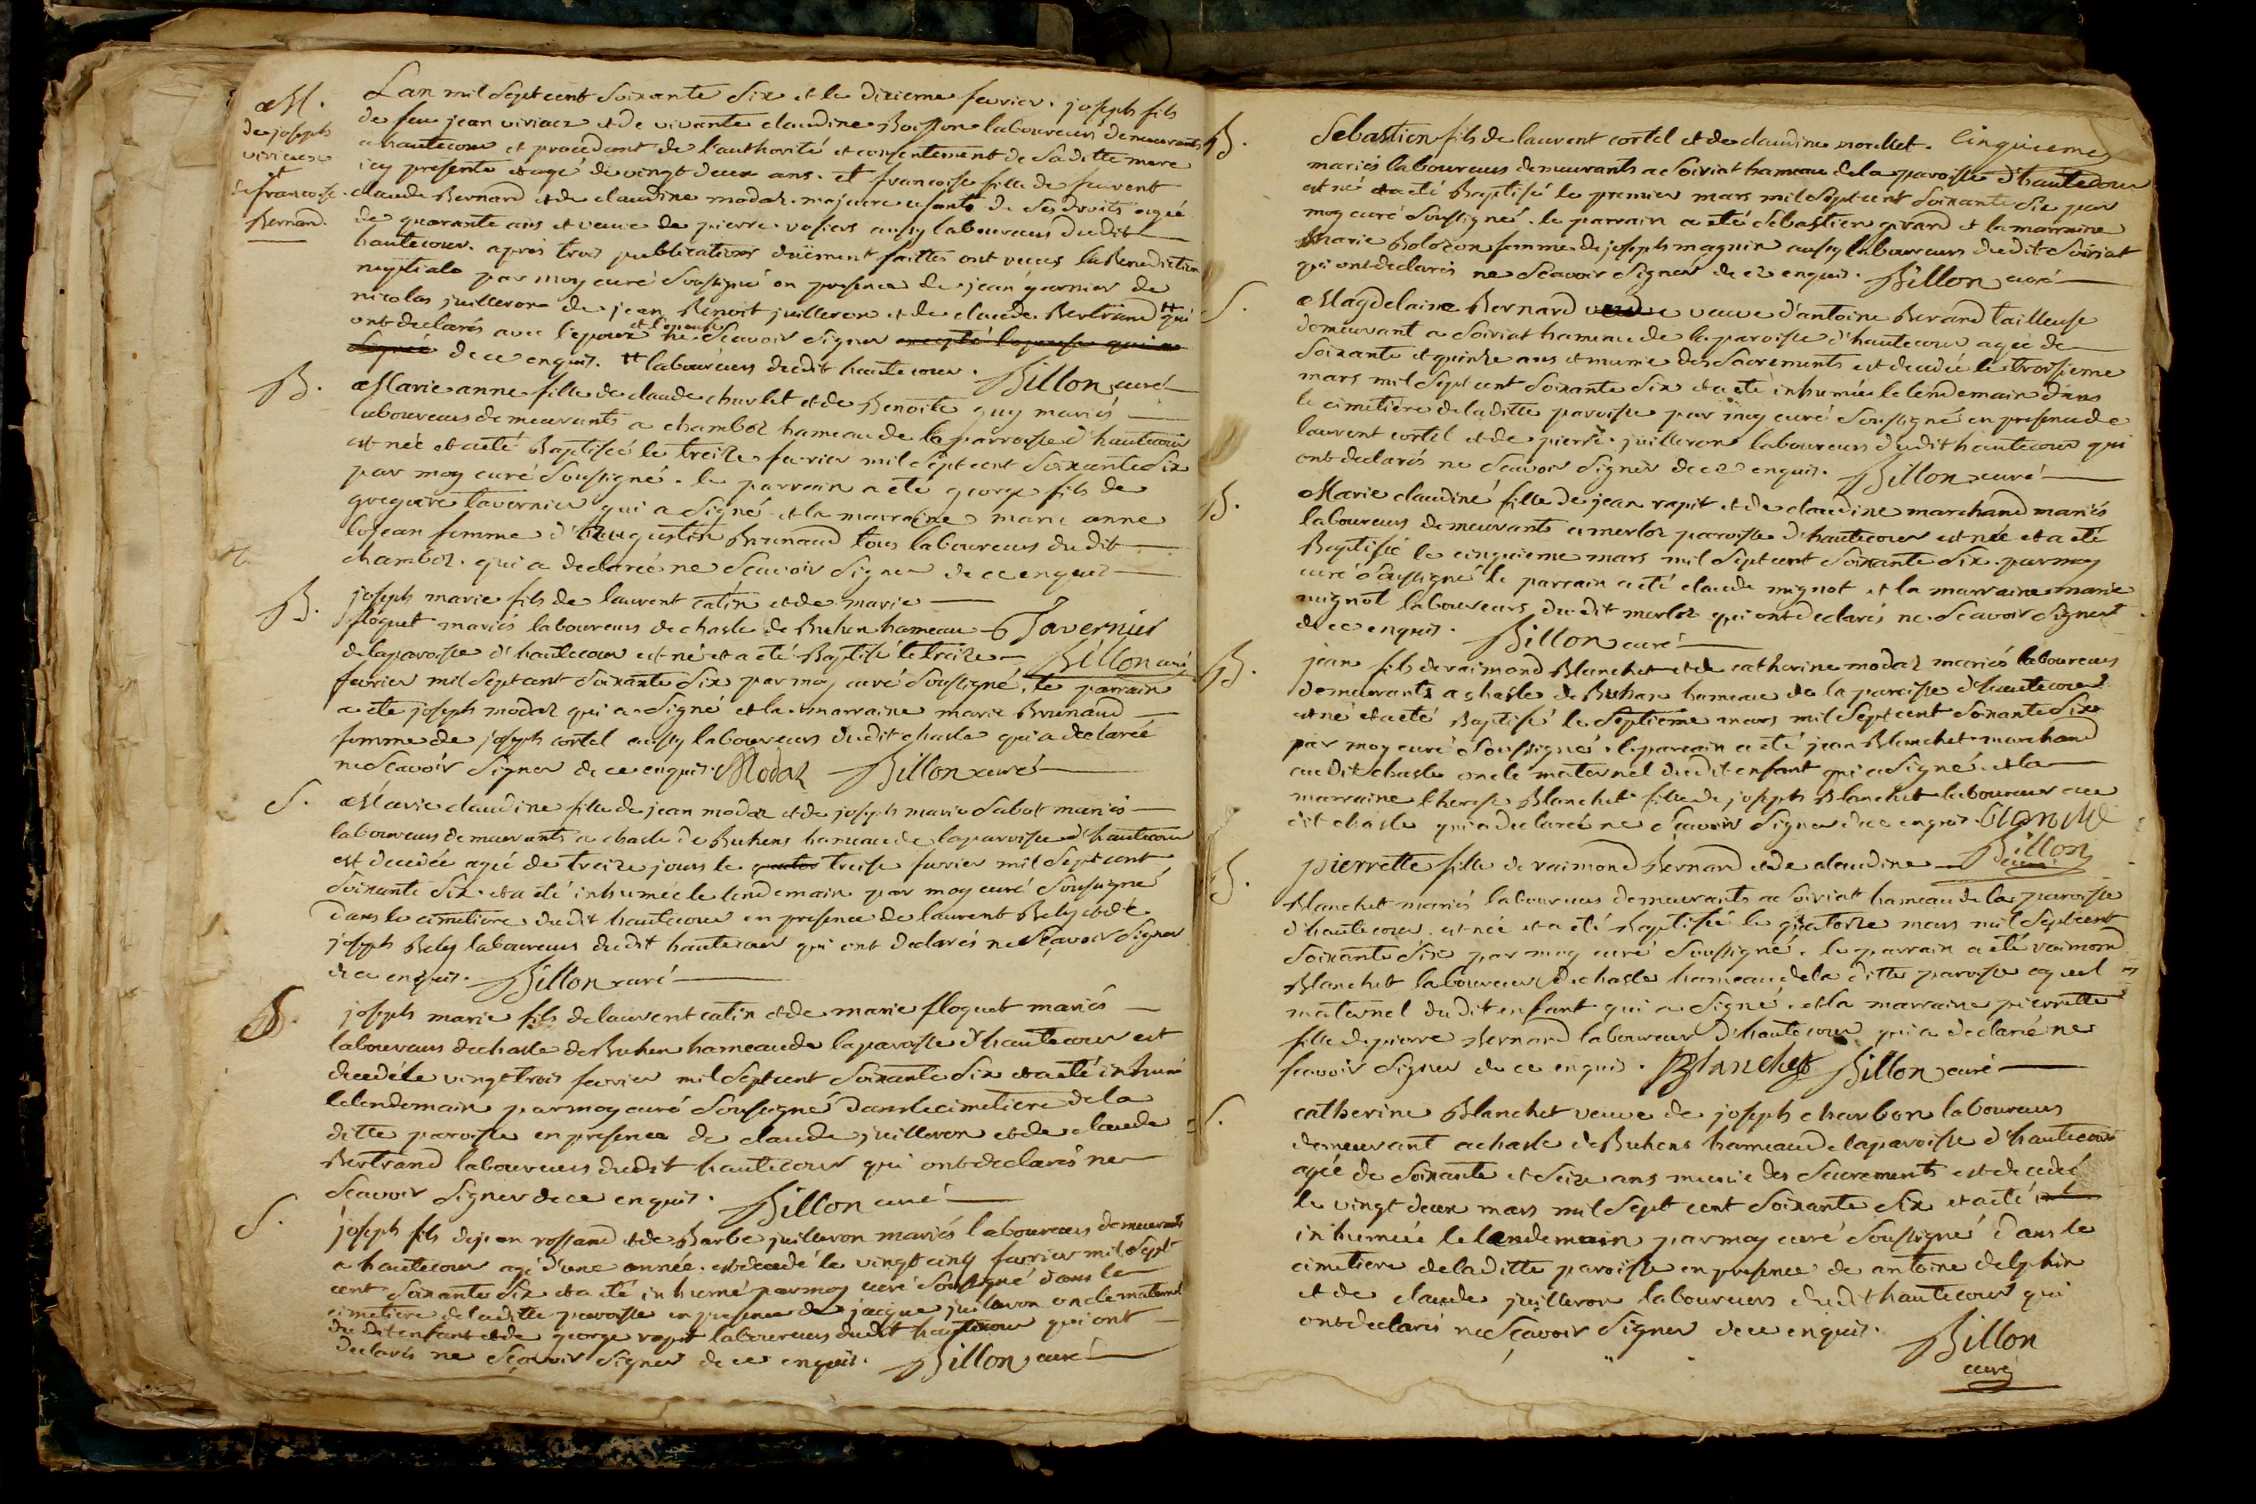 M.
de joseph
vivicure
et
de francoise
Bernard.
Lan mil Sept cent Soixante Six et le dixieme fevrier. joseph fils
de feu jean et de vivante claudine Boisson laboureurs demeurants
a hautecour et procedant de l'authorité et consentement de Saditte mere
icy presente et agé de vingt deux ans. et francoise fille de feu
claude Bernard et de claudine modaz majeure usante de Ses droits agée
de quarante ans et veuve de pierre aussy laboureurs dudit
hautecour. apres trois publications duëment faittes ont receus la Benediction
nuptiale par moy curé Soussigné en presence de jean garnier de
nicolas juilleron de jean Benoit juilleron et de claude Bertrand # qui
ont declarés avec l'epoux et l'epouse ne Scavoir Signer excepté l'epouse qui a
Signée de ce enquis. # laboureurs dudit hautecour. Billon curé
B. Marie anne fille de claude charlet et de Benoite guy mariés
laboureurs demeurants a chamboz hameau de la parroisse d'hautecour
est née et a eté Baptisée le treize fevrier mil Sept cent Soixante Six
par moy curé Soussigné. le parrain a eté george fils de
gregoire tavernier qui a Signé et la marraine marie anne
lojean femme d'augustin Brunaud tous laboureurs dudit
chamboz. qui a declarée ne Scavoir Signer de ce enquis
B. joseph marie fils de laurent catin et de marie
floquet mariés laboureurs de chasle de Buhen hameau G Tavernier
de la paroisse d'hautecour est né et a eté Baptisé le treize Billon curé
fevrier mil Sept cent Soixante Six par moy curé Soussigné, le parrain
a ete joseph modaz qui a Signé et la marraine marie Brunaud
femme de joseph cortel aussy laboureurs dudit chasle qui a declarée
ne Scavoir Signer de ce enquis. Modaz Billon curé
S. Marie claudine fille de jean modaz et de joseph marie Sabot mariés
laboureurs demeurants a chasle de Buhens hameau de la paroisse d'hautecour
est decedée agée de treize jours le quator treise fevrier mil Sept cent
Soixante Six. et a eté inhumée le lendemain par moy curé Soussigné
dans le cimetiere dudit hautecour en presence de laurent Bely et de
joseph Bely laboureurs dudit hautecour qui ont declarés ne Scavoir Signer
de ce enquis. Billon curé
S. joseph marie fils de laurent catin et de marie floquet mariés
laboureurs de chasle de Buhen hameau de la paroisse d'hautecour est
decedé le vingt trois fevrier mil Sept cent Soixante Six et a eté inhumé
le lendemain par moy curé Soussigné dans le cimetiere de la
ditte paroisse en presence de claude juilleron et de claude
Bertrand laboureurs dudit hautecour qui ont declarés ne
Scavoir Signer de ce enquis. Billon curé
S. joseph fils de jean rossand et de Barbe juilleron mariés laboureurs demeurants
a hautecour agé d'une année. est decedé le vingt cinq fevrier mil Sept
cent Soixante Six et a eté inhumé par moy curé Soussigné dans le
cimetiere de laditte paroisse en presence de jacque juilleron oncle maternel
du dit enfant et de george rapit laboureurs dudit hautecour qui ont
declarés ne Scavoir Signer de ce enquis. Billon curé
B. Sebastien fils de laurent cortel et de claudine morellet. Cinquieme
mariés laboureurs demeurants a Soiriat hameau de la paroisse d'hautecour
est né et a eté Baptisé le premier mars mil Sept cent Soixante Six par
moy curé Soussigné. le parrain a eté Sebastien girard et la marraine
Marie Bolozon femme de joseph magnin aussy laboureurs dudit Soiriat
qui ont declarés ne Scavoir Signer de ce enquis. Billon curé
S. Magdelaine Bernard veuve d'antoine Berard tailleuse
demeurant a Soiriat hameau de la paroisse d'hautecour agée de
Soixante et quinze ans et munie des Sacrements est decedée le troisieme
mars mil Sept cent Soixante Six et a eté inhumée le lendemain dans
le cimetiere de la ditte paroisse par moy curé Soussigné en presence de
laurent cortel et de pierre juilleron laboureurs dudit hautecour qui
ont declarés ne Scavoir Signer de ce enquis. Billon curé
B. Marie claudine fille de jean rapit et de claudine marchand mariés
laboureurs demeurants a merloz paroisse d'hautecour est née et a eté
Baptisée le cinquieme mars mil Sept cent Soixante Six. par moy
curé Soussigné le parrain a eté claude mignot et la marraine marie
mignot laboureurs du dit merloz qui ont declarés ne Scavoir Signer
de ce enquis. Billon curé
B. jean fils de raimond Blanchet et de catherine modaz mariés laboureurs
demeurants a chasle de Buhan hameau de la paroisse d'hautecour
est né et a eté Baptisé le Septieme mars mil Sept cent Soixante Six
par moy curé Soussigné. le parrain a eté jean Blanchet marchand
audit chasle oncle maternel dudit enfant qui a Signé. et la
marraine therese Blanchet fille de joseph Blanchet laboureur au
dit chasle qui a declarée ne Scavoir Signer de ce enquis. blanchet
B. pierrette fille de raimond Bernard et de claudine Billon curé
Blanchet mariés laboureurs demeurants a Soiriat hameau de la paroisse
d'hautecour. est née et a eté Baptisée le quatorze mars mil Sept cent
Soixante Six par moy curé Soussigné. le parrain a eté raimond
Blanchet laboureur de chasle hameau de la ditte paroisse ayeul
maternel du dit enfant qui a Signé. et la marraine pierrette
fille de pierre Bernard laboureur d'hautecour qui a declarée ne
Scavoir Signer de ce enquis. R Blanchet Billon curé
S. catherine Blanchet veuve de joseph charbon laboureurs
demeurant a chasle de Buhens hameau de la paroisse d'hautecour
agée de Soixante et Seize ans munie des Sacrements est decedée
le vingt deux mars mil Sept cent Soixante Six et a eté
inhumée le lendemain par moy curé Soussigné dans le
cimetiere de laditte paroisse en presence de antoine delphin
et de claude juilleron laboureurs dudit hautecour qui
ont declarés ne Scavoir Signer de ce enquis. Billon
curé